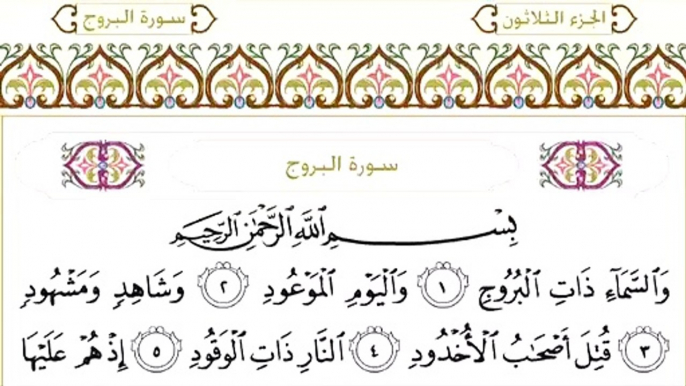 الجزء الثلاثون
سورة البروج
سورة البروج
بِسْمِ اللَّهِ الرَّحْمَٰنِ الرَّحِيمِ
وَالسَّمَاءِ ذَاتِ الْبُرُوجِ ١ وَالْيَوْمِ الْمَوْعُودِ ٢ وَشَاهِدٍ وَمَشْهُودٍ
٣ قُتِلَ أَصْحَابُ الْأُخْدُودِ ٤ النَّارِ ذَاتِ الْوَقُودِ ٥ إِذْ هُمْ عَلَيْهَا